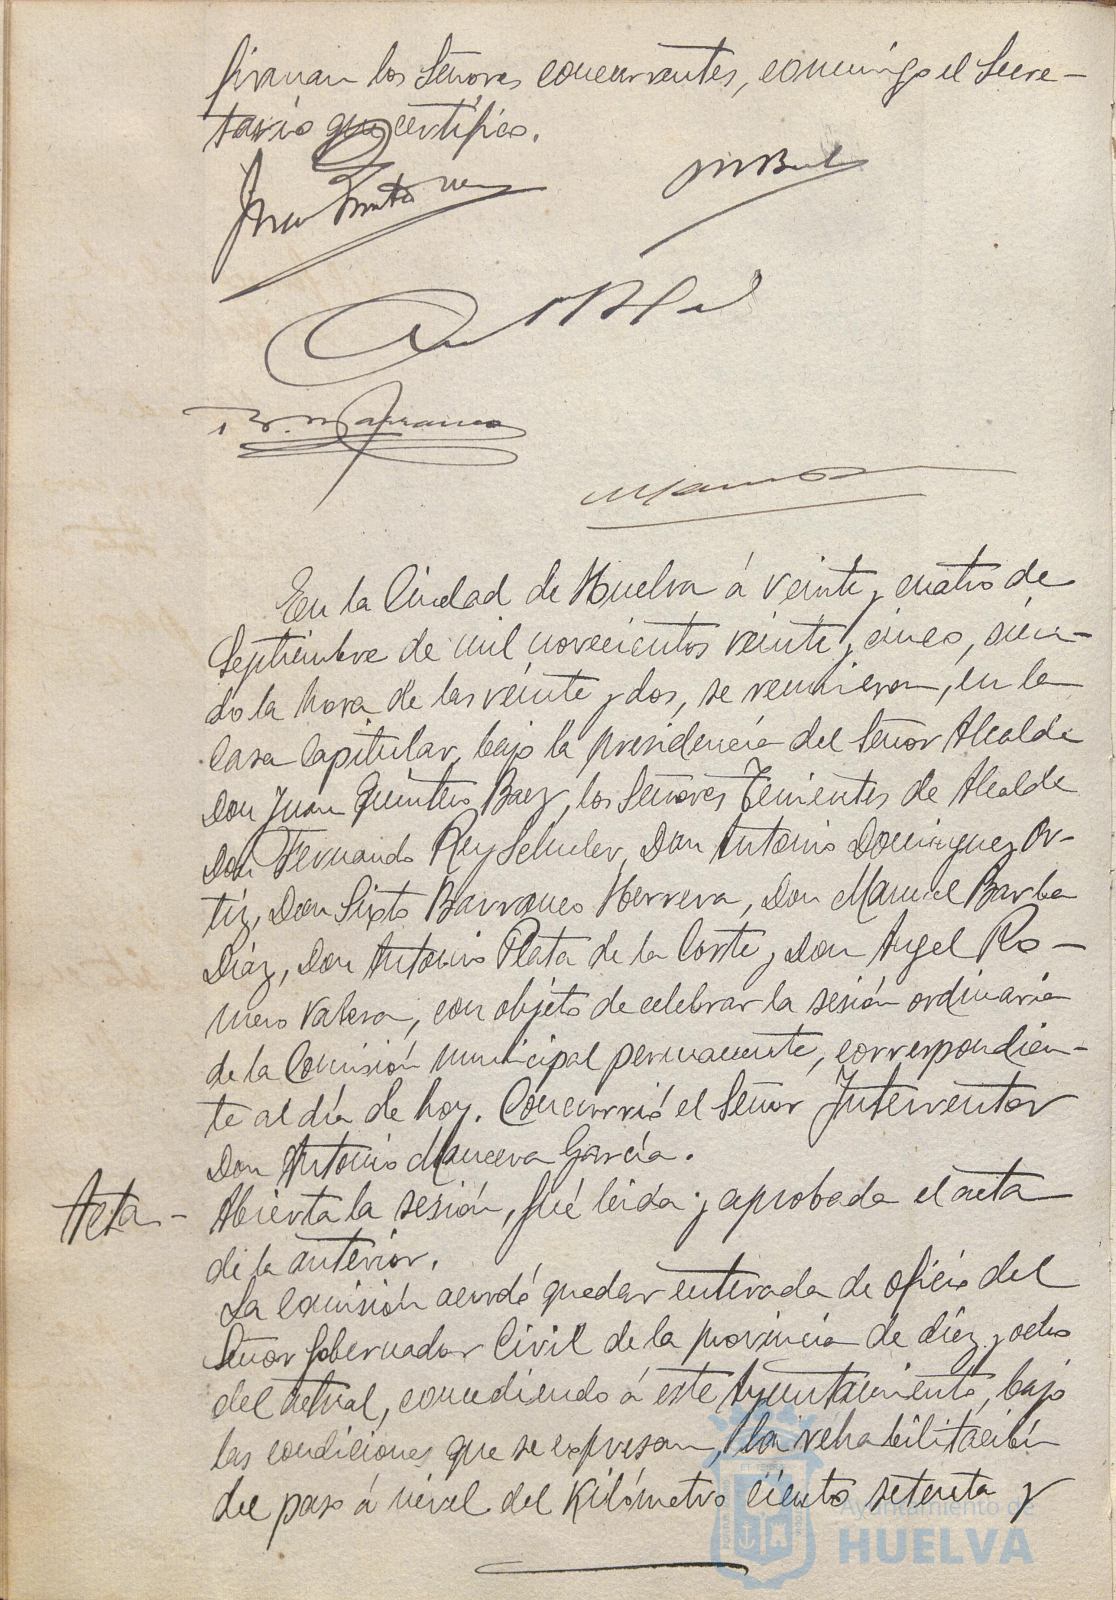 firman los Señores concurrentes, conmigo el Secre-
tario que certifico.
En la Ciudad de Huelva á veinte y cuatro de
Septiembre de mil novecientos veinte y cinco, sien-
do la hora de las veinte y dos, se reunieron, en la
Casa Capitular, bajo la presidencia del Señor Alcalde
Don Juan Quintero Baez, los Señores Tenientes de Alcalde
Don Fernando Rey Schuler, Don Antonio Dominguez Or-
tiz, Don Sixto Barranco Herrera, Don Manuel Barba
Diáz, Don Antonio Plata de la Corte y Don Angel Ro-
mero Valera, con objeto de celebrar la sesión ordinaria
de la Comisión municipal permanente, correspondien-
te al día de hoy. Concurrió el Señor Interventor
Don Antonio Manceva García.
Acta- Abierta la sesión, fué leida y aprobada el acta
de la anterior.
La Comisión acordó quedar enterada de oficio del
Señor Gobernador Civil de la provincia de diez y ocho
del actual, concediendo á este Ayuntamiento, bajo
las condiciones que se expresan, la rehabilitación
del paso á nivel del Kilómetro ciento setenta y
Ayuntamiento de
HUELVA